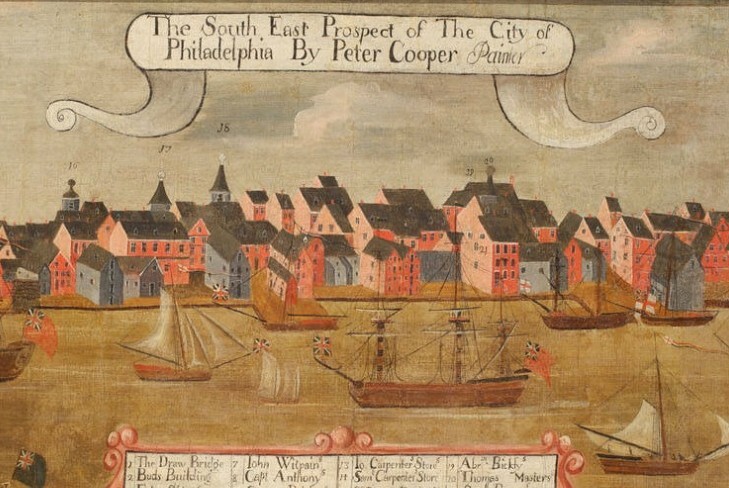 The South East Prospect of The City of
Philadelphia By Peter Cooper Painter
16
17
18
20
21
1 The Draw Bridge 7 Iohn Witpain's 13 Io Carpenter's Store 19 Abr. Bickly's
2 Buds Building 8 Capt Anthony's 14 Sam Carpenter Store 20 Thomas Masters